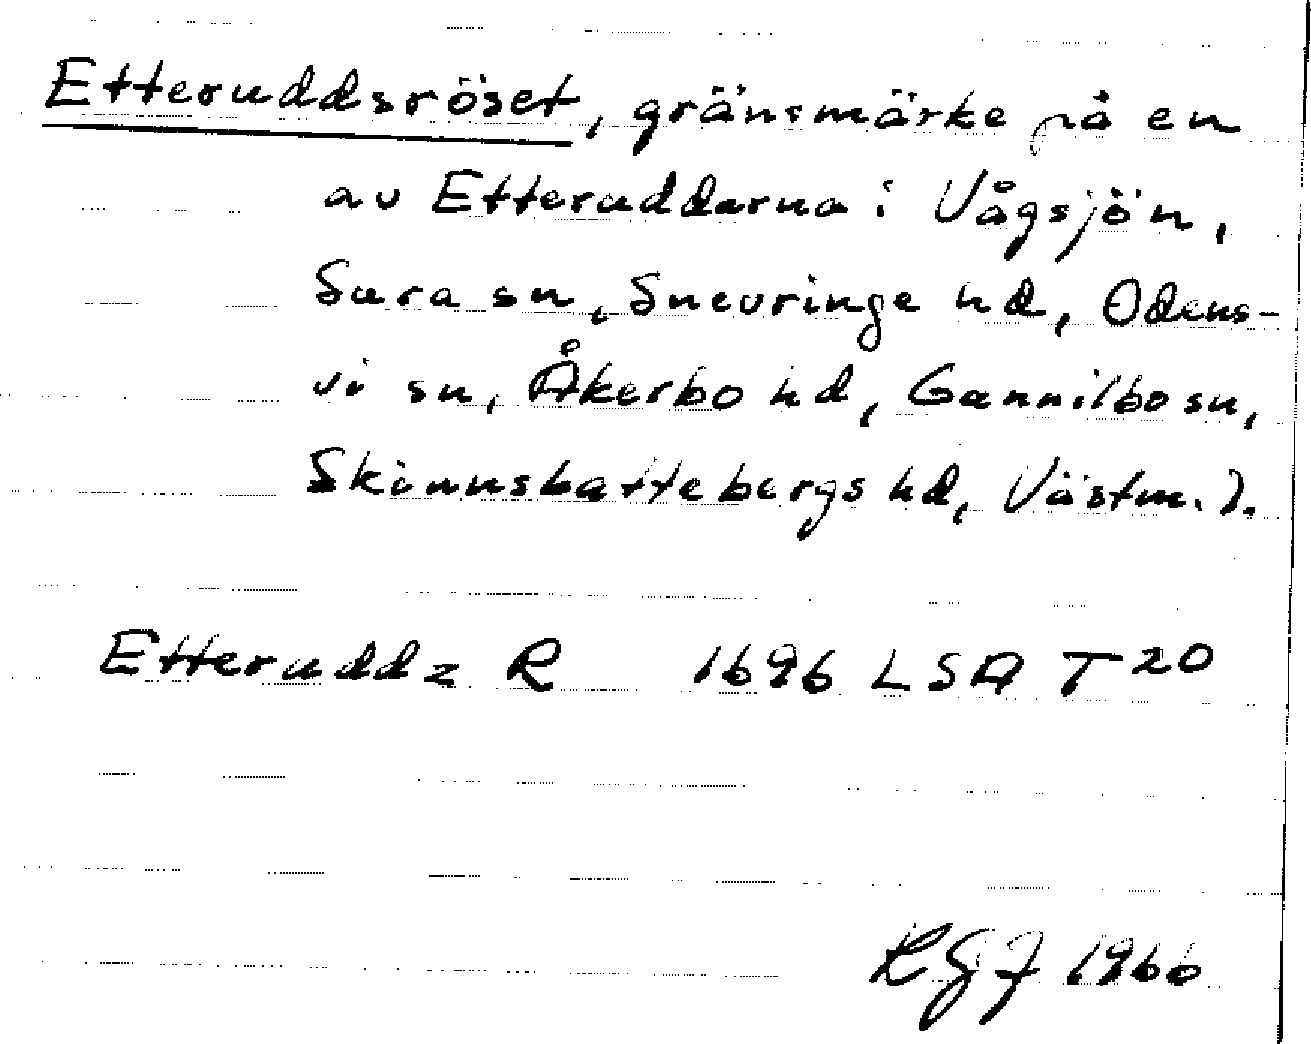 Etteruddsröset, gränsmärke på en
av Etteruddarna i Vågsjön,
Sura sn, Snevringe hd, Odens-
vi sn, Åkerbo hd, Gunnilbo sn,
Skinnskattebergs hd, Västm. l.
Etteruddz R 1696 LSA T 20
LGJ 1966